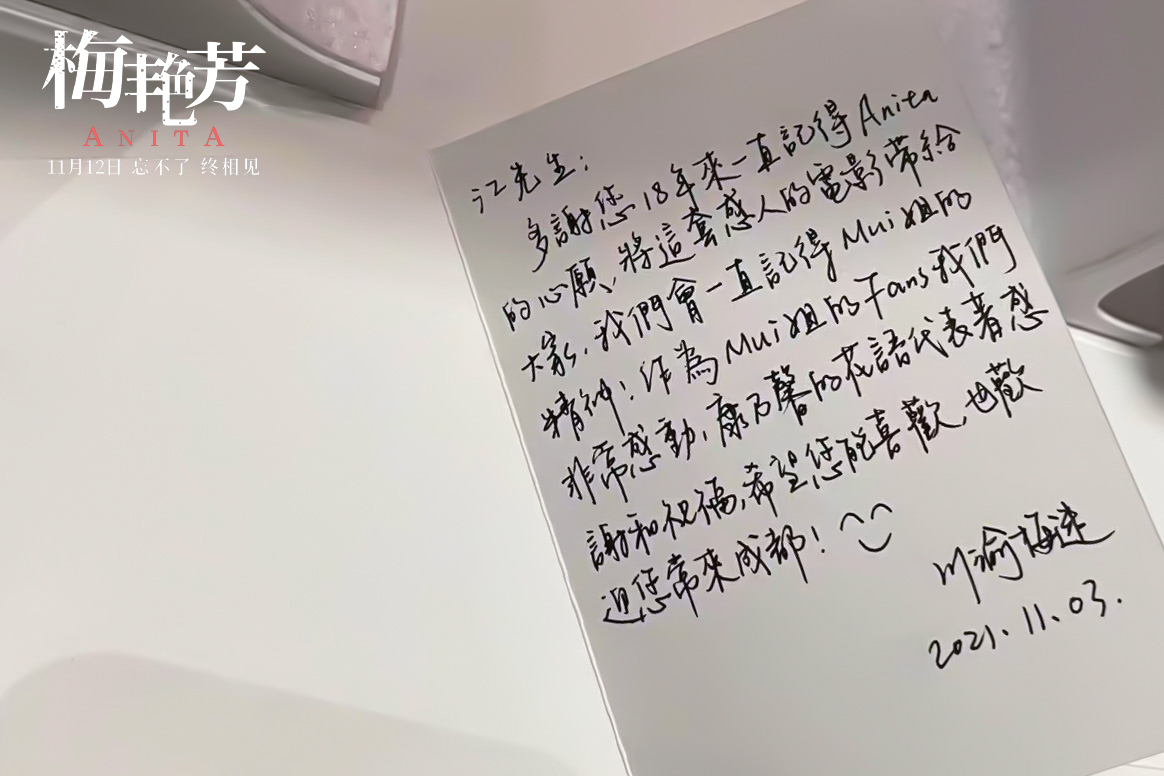 梅艳芳
ANITA
11月12日 忘不了 终相见
江先生：
多謝您18年來一直記得Anita
的心願、將這套感人的電影帶給
大家，我們會一直記得Mui姐的
精神！作為Mui姐的Fans我們
非常感動，康乃馨的花語代表著感
謝和祝福，希望您能喜歡，也歡
迎您常來成都！
川渝梅迷
2021.11.03.